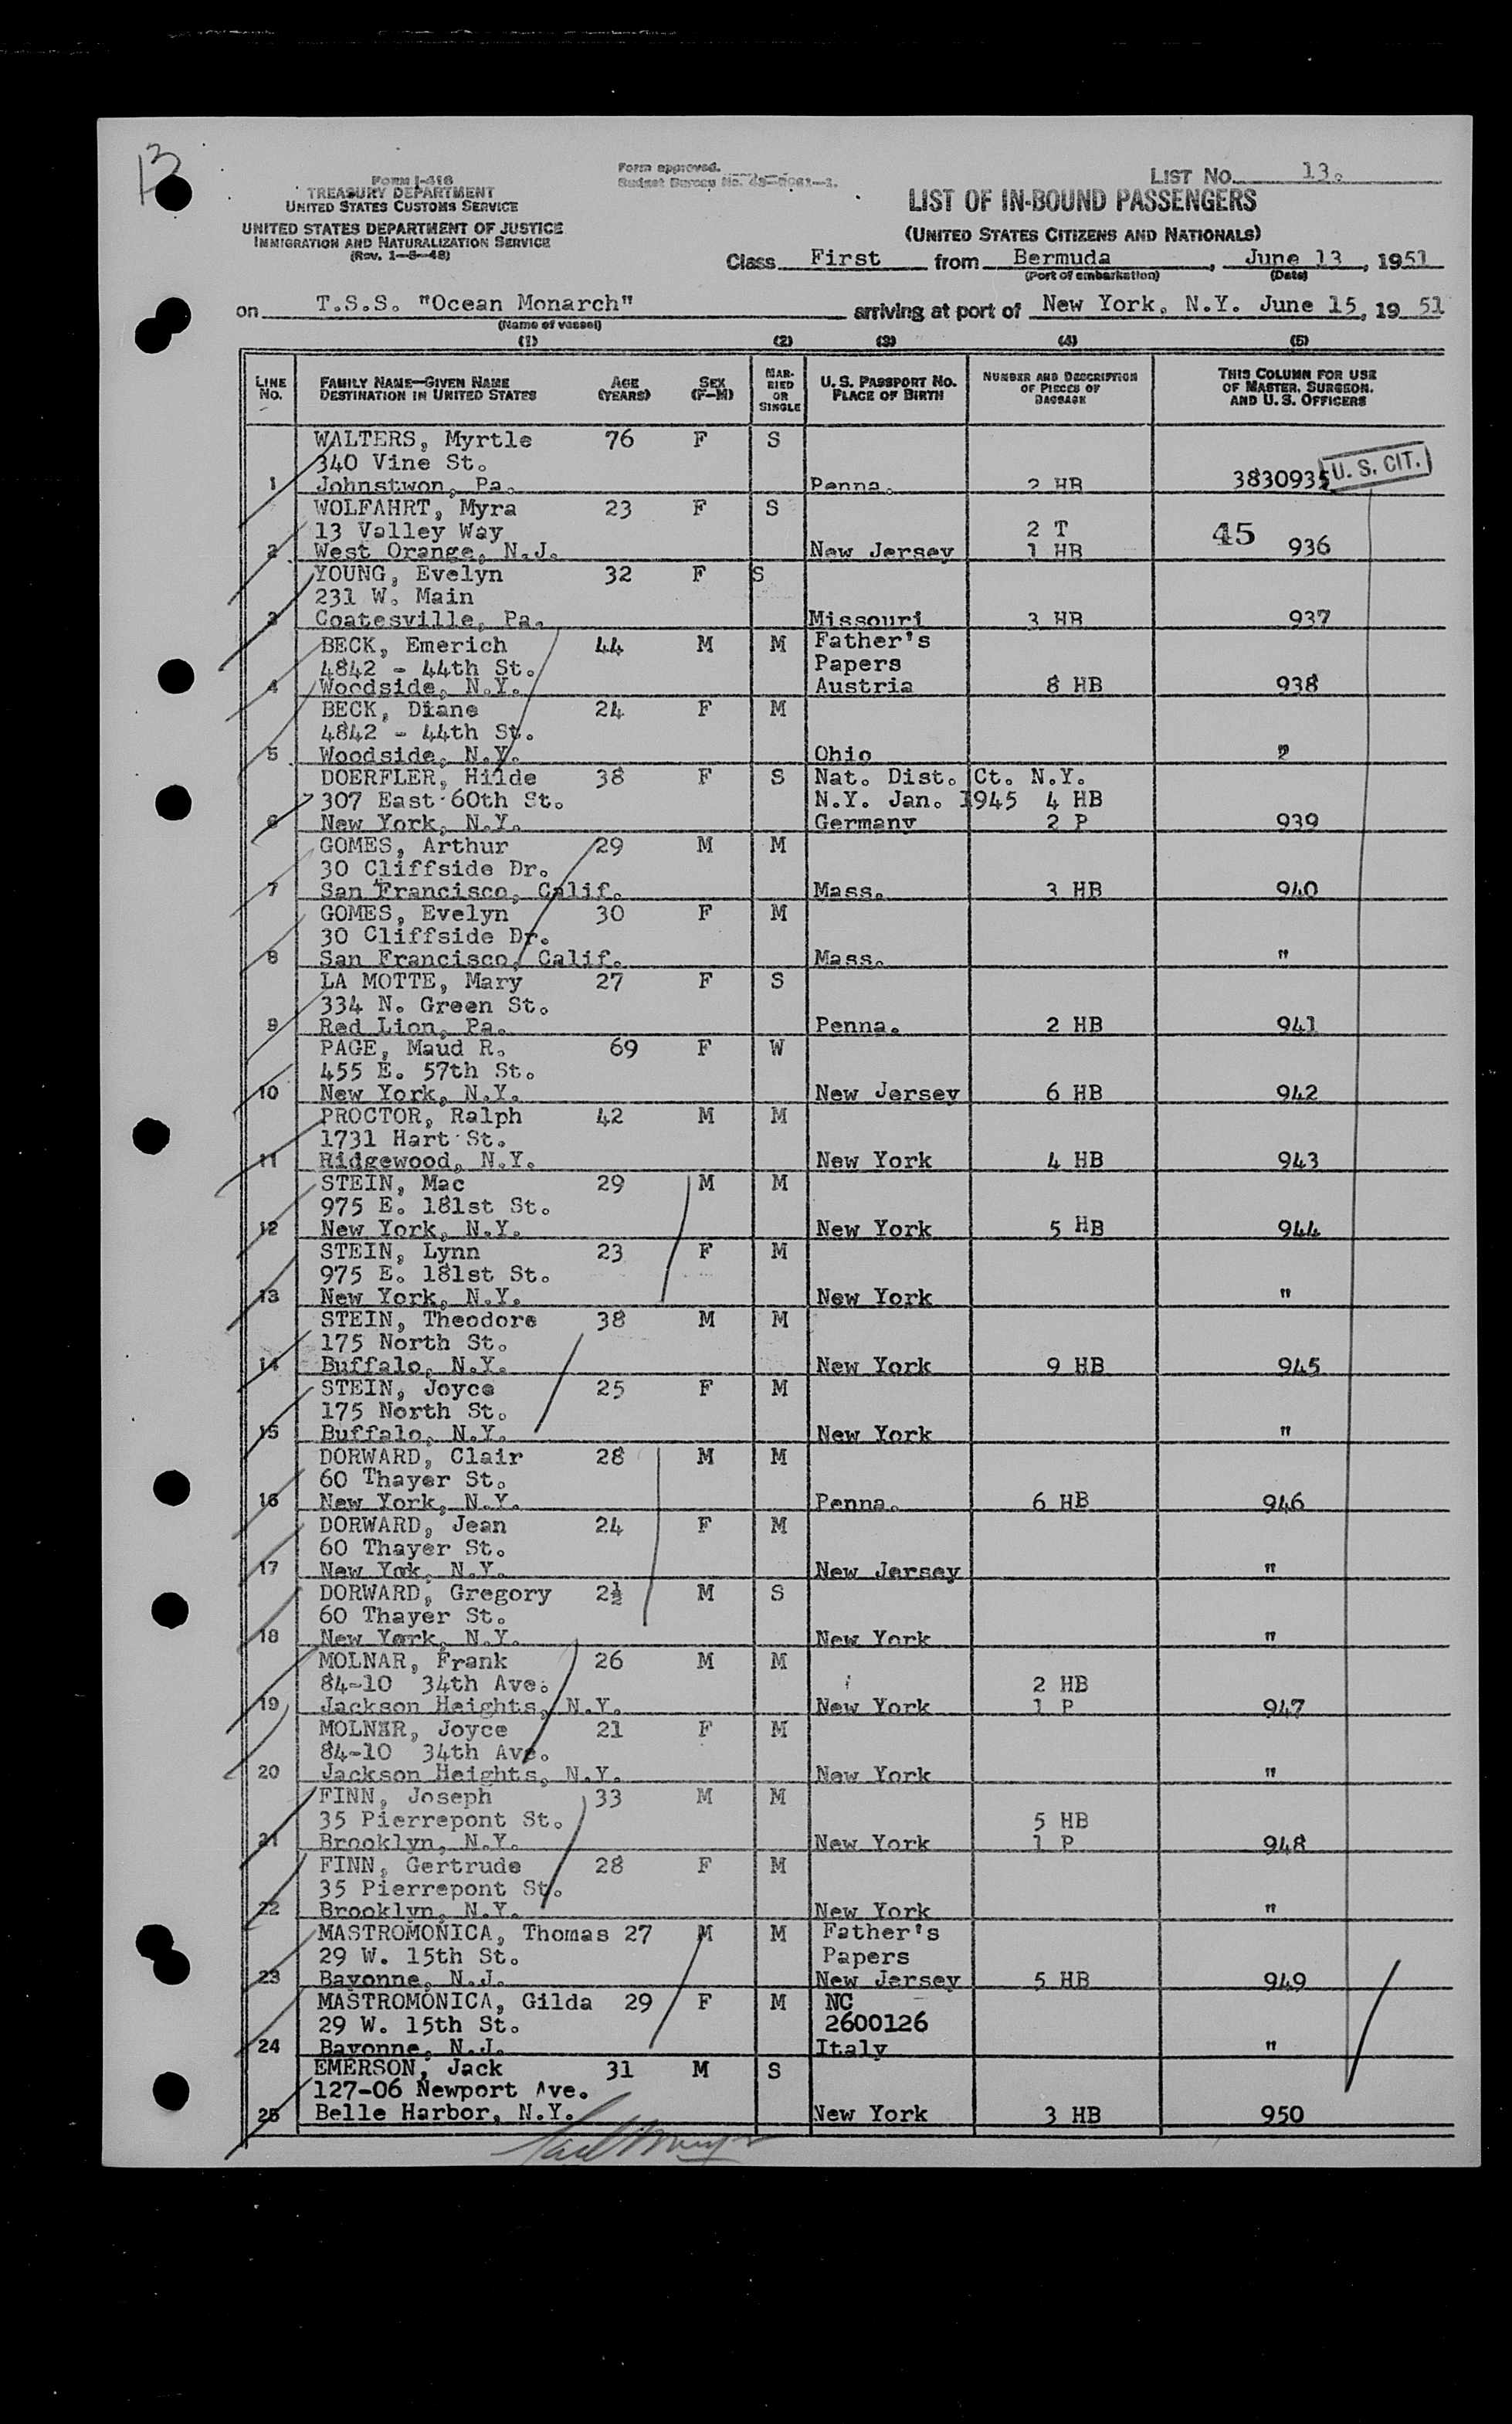 13
Form I-418
TREASURY DEPARTMENT
UNITED STATES CUSTOMS SERVICE
UNITED STATES DEPARTMENT OF JUSTICE
IMMIGRATION AND NATURALIZATION SERVICE
(Rev. 1-5-48)
Form approved.
Budget Bureau No.
LIST No. 13.
LIST OF IN-BOUND PASSENGERS
(UNITED STATES CITIZENS AND NATIONALS)
Class First from Bermuda, June 13, 1951
(Port of embarkation) (Date)
on T.S.S. "Ocean Monarch" arriving at port of New York, N.Y. June 15, 19 51
(Name of vessel)
(1) (2) (3) (4) (5)
LINE No. FAMILY NAME—GIVEN NAME DESTINATION IN UNITED STATES AGE (YEARS) SEX (F-M) MARRIED OR SINGLE U. S. PASSPORT No. PLACE OF BIRTH NUMBER AND DESCRIPTION OF PIECES OF BAGGAGE THIS COLUMN FOR USE OF MASTER, SURGEON, AND U. S. OFFICERS
WALTERS, Myrtle 76 F S
340 Vine St. U. S. CIT.
1 Johnstwon, Pa. Penna. 2 HB 3830935
WOLFAHRT, Myra 23 F S
13 Valley Way 2 T 45
2 West Orange, N.J. New Jersey 1 HB 936
YOUNG, Evelyn 32 F S
231 W. Main
3 Coatesville, Pa. Missouri 3 HB 937
BECK, Emerich 44 M M Father's
4842 - 44th St. Papers
4 Woodside, N.Y. Austria 8 HB 938
BECK, Diane 24 F M
4842 - 44th St.
5 Woodside, N.Y. Ohio "
DOERFLER, Hilde 38 F S Nat. Dist. Ct. N.Y.
307 East 60th St. N.Y. Jan. 1945 4 HB
6 New York, N.Y. Germany 2 P 939
GOMES, Arthur 29 M M
30 Cliffside Dr.
7 San Francisco, Calif. Mass. 3 HB 940
GOMES, Evelyn 30 F M
30 Cliffside Dr.
8 San Francisco, Calif. Mass. "
LA MOTTE, Mary 27 F S
334 N. Green St.
9 Red Lion, Pa. Penna. 2 HB 941
PAGE, Maud R. 69 F W
455 E. 57th St.
10 New York, N.Y. New Jersey 6 HB 942
PROCTOR, Ralph 42 M M
1731 Hart St.
11 Ridgewood, N.Y. New York 4 HB 943
STEIN, Mac 29 M M
975 E. 181st St.
12 New York, N.Y. New York 5 HB 944
STEIN, Lynn 23 F M
975 E. 181st St.
13 New York, N.Y. New York "
STEIN, Theodore 38 M M
175 North St.
14 Buffalo, N.Y. New York 9 HB 945
STEIN, Joyce 25 F M
175 North St.
15 Buffalo, N.Y. New York "
DORWARD, Clair 28 M M
60 Thayer St.
16 New York, N.Y. Penna. 6 HB 946
DORWARD, Jean 24 F M
60 Thayer St.
17 New Yok, N.Y. New Jersey "
DORWARD, Gregory 2½ M S
60 Thayer St.
18 New York, N.Y. New York "
MOLNAR, Frank 26 M M
84-10 34th Ave. 2 HB
19 Jackson Heights, N.Y. New York 1 P 947
MOLNAR, Joyce 21 F M
84-10 34th Ave.
20 Jackson Heights, N.Y. New York "
FINN, Joseph 33 M M
35 Pierrepont St. 5 HB
21 Brooklyn, N.Y. New York 1 P 948
FINN, Gertrude 28 F M
35 Pierrepont St.
22 Brooklyn, N.Y. New York "
MASTROMONICA, Thomas 27 M M Father's
29 W. 15th St. Papers
23 Bayonne, N.J. New Jersey 5 HB 949
MASTROMONICA, Gilda 29 F M NC
29 W. 15th St. 2600126
24 Bayonne, N.J. Italy "
EMERSON, Jack 31 M S
127-06 Newport Ave.
25 Belle Harbor, N.Y. New York 3 HB 950